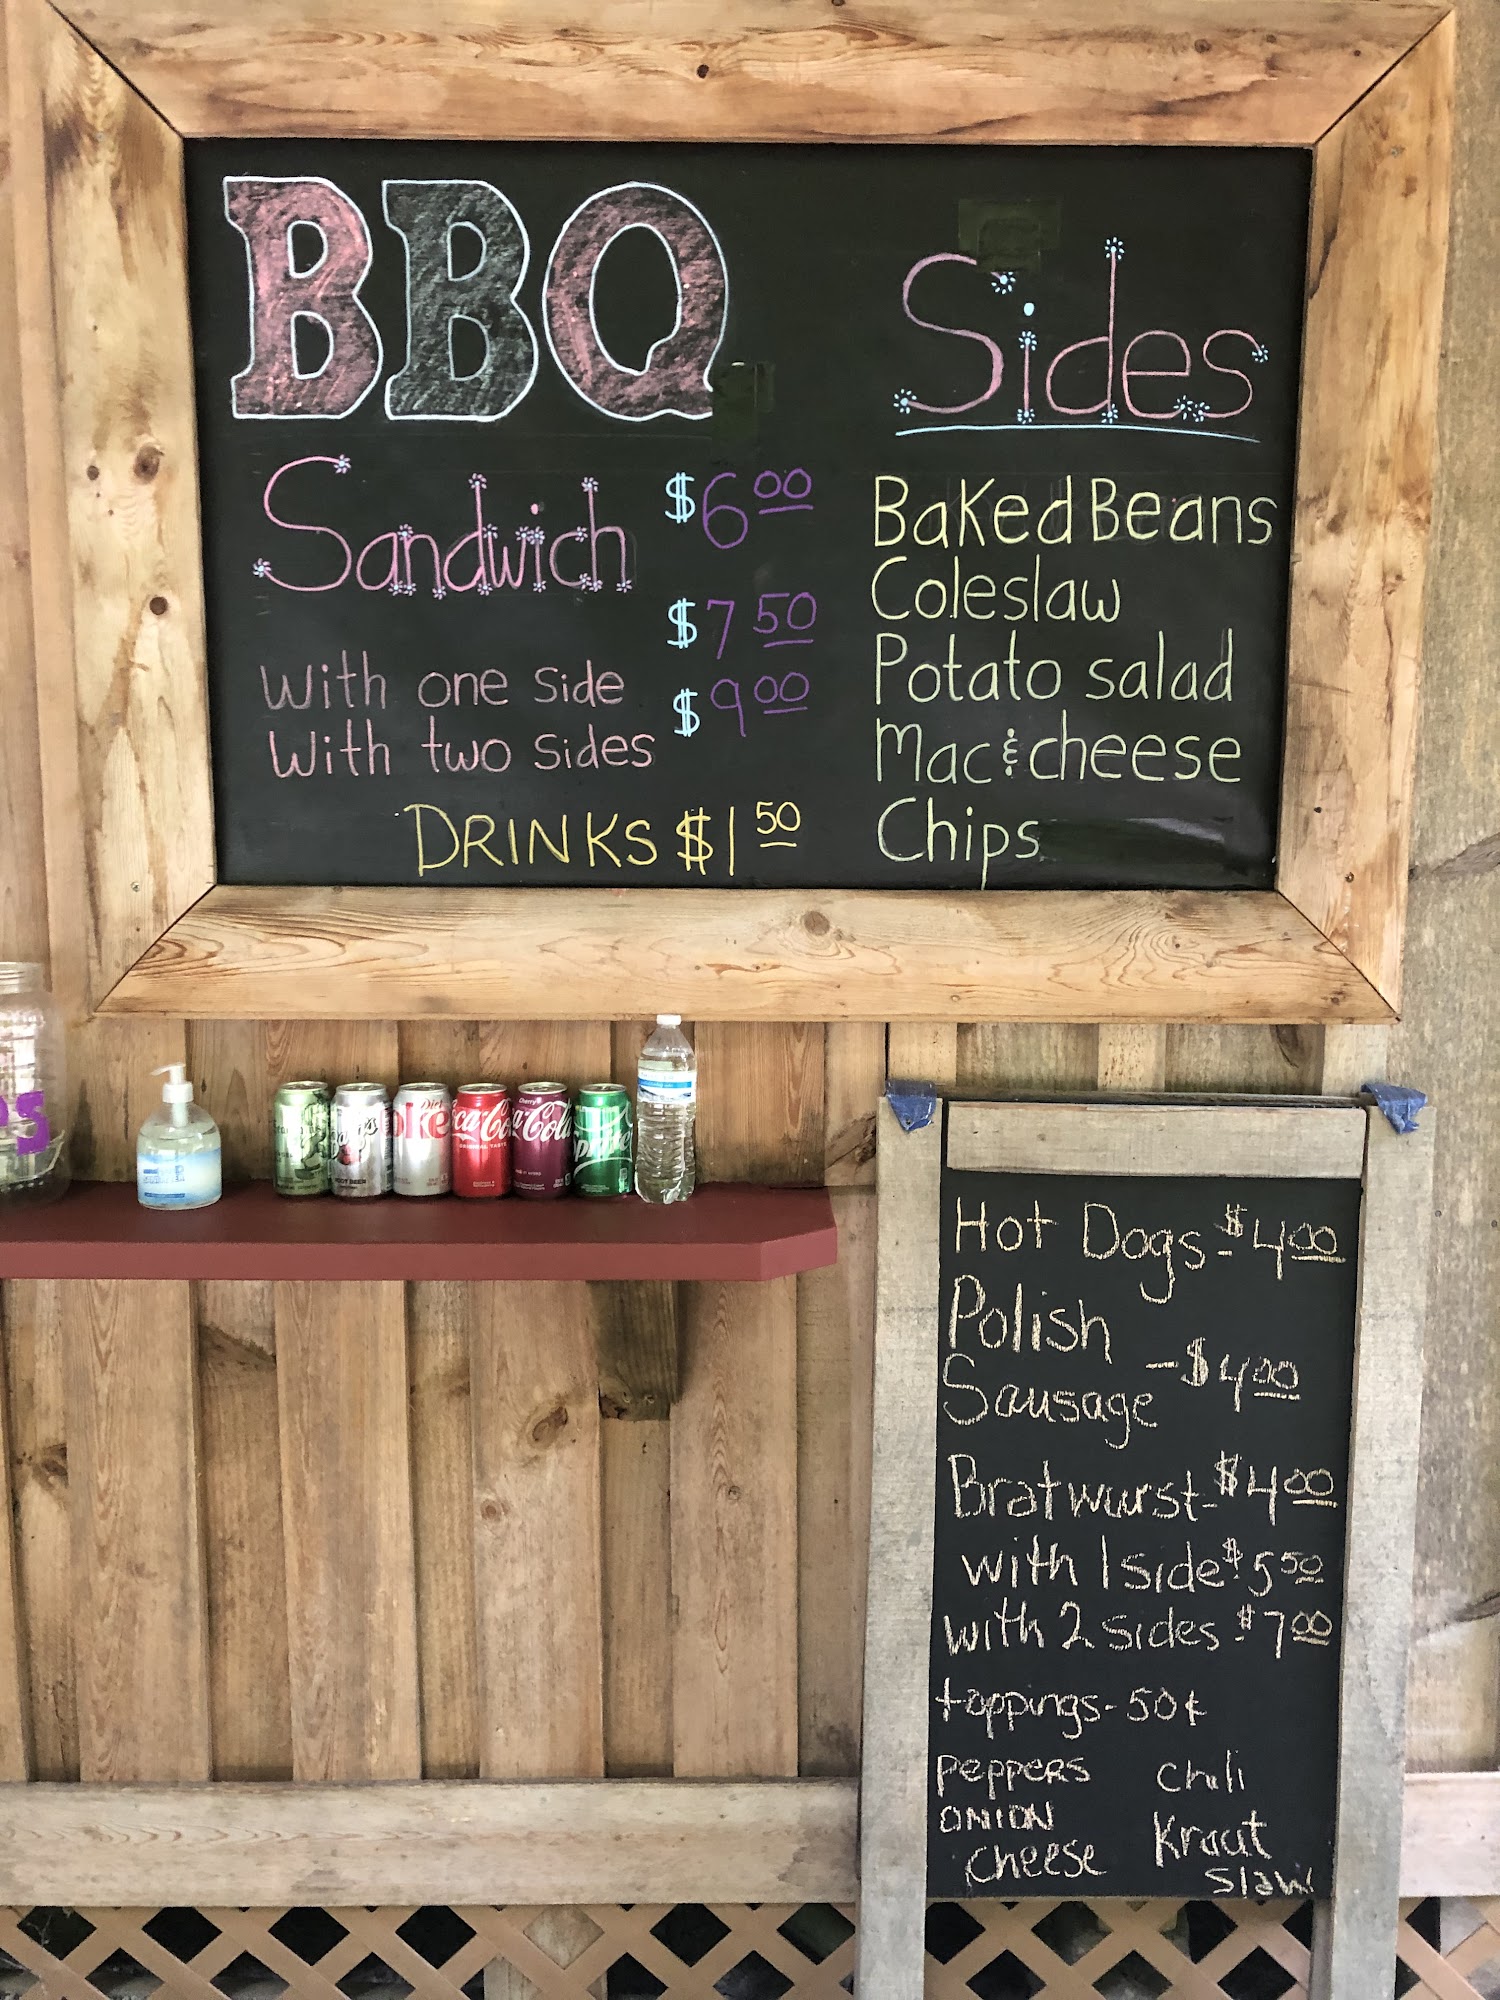 BBQ
Sandwich $6.00
$7.50
With one side
$9.00
With two sides
DRINKS $1.50
Sides
Baked Beans
Coleslaw
Potato salad
Mac & cheese
Chips
Diet
Coke
Coca-Cola
Cherry
Coca-Cola
Sprite
ROOT BEER
PS
Hot Dogs - $4.00
Polish
Sausage - $4.00
Bratwurst - $4.00
with 1 side $5.50
with 2 sides $7.00
toppings - 50¢
Peppers Chili
Onion Kraut
Cheese Slaw